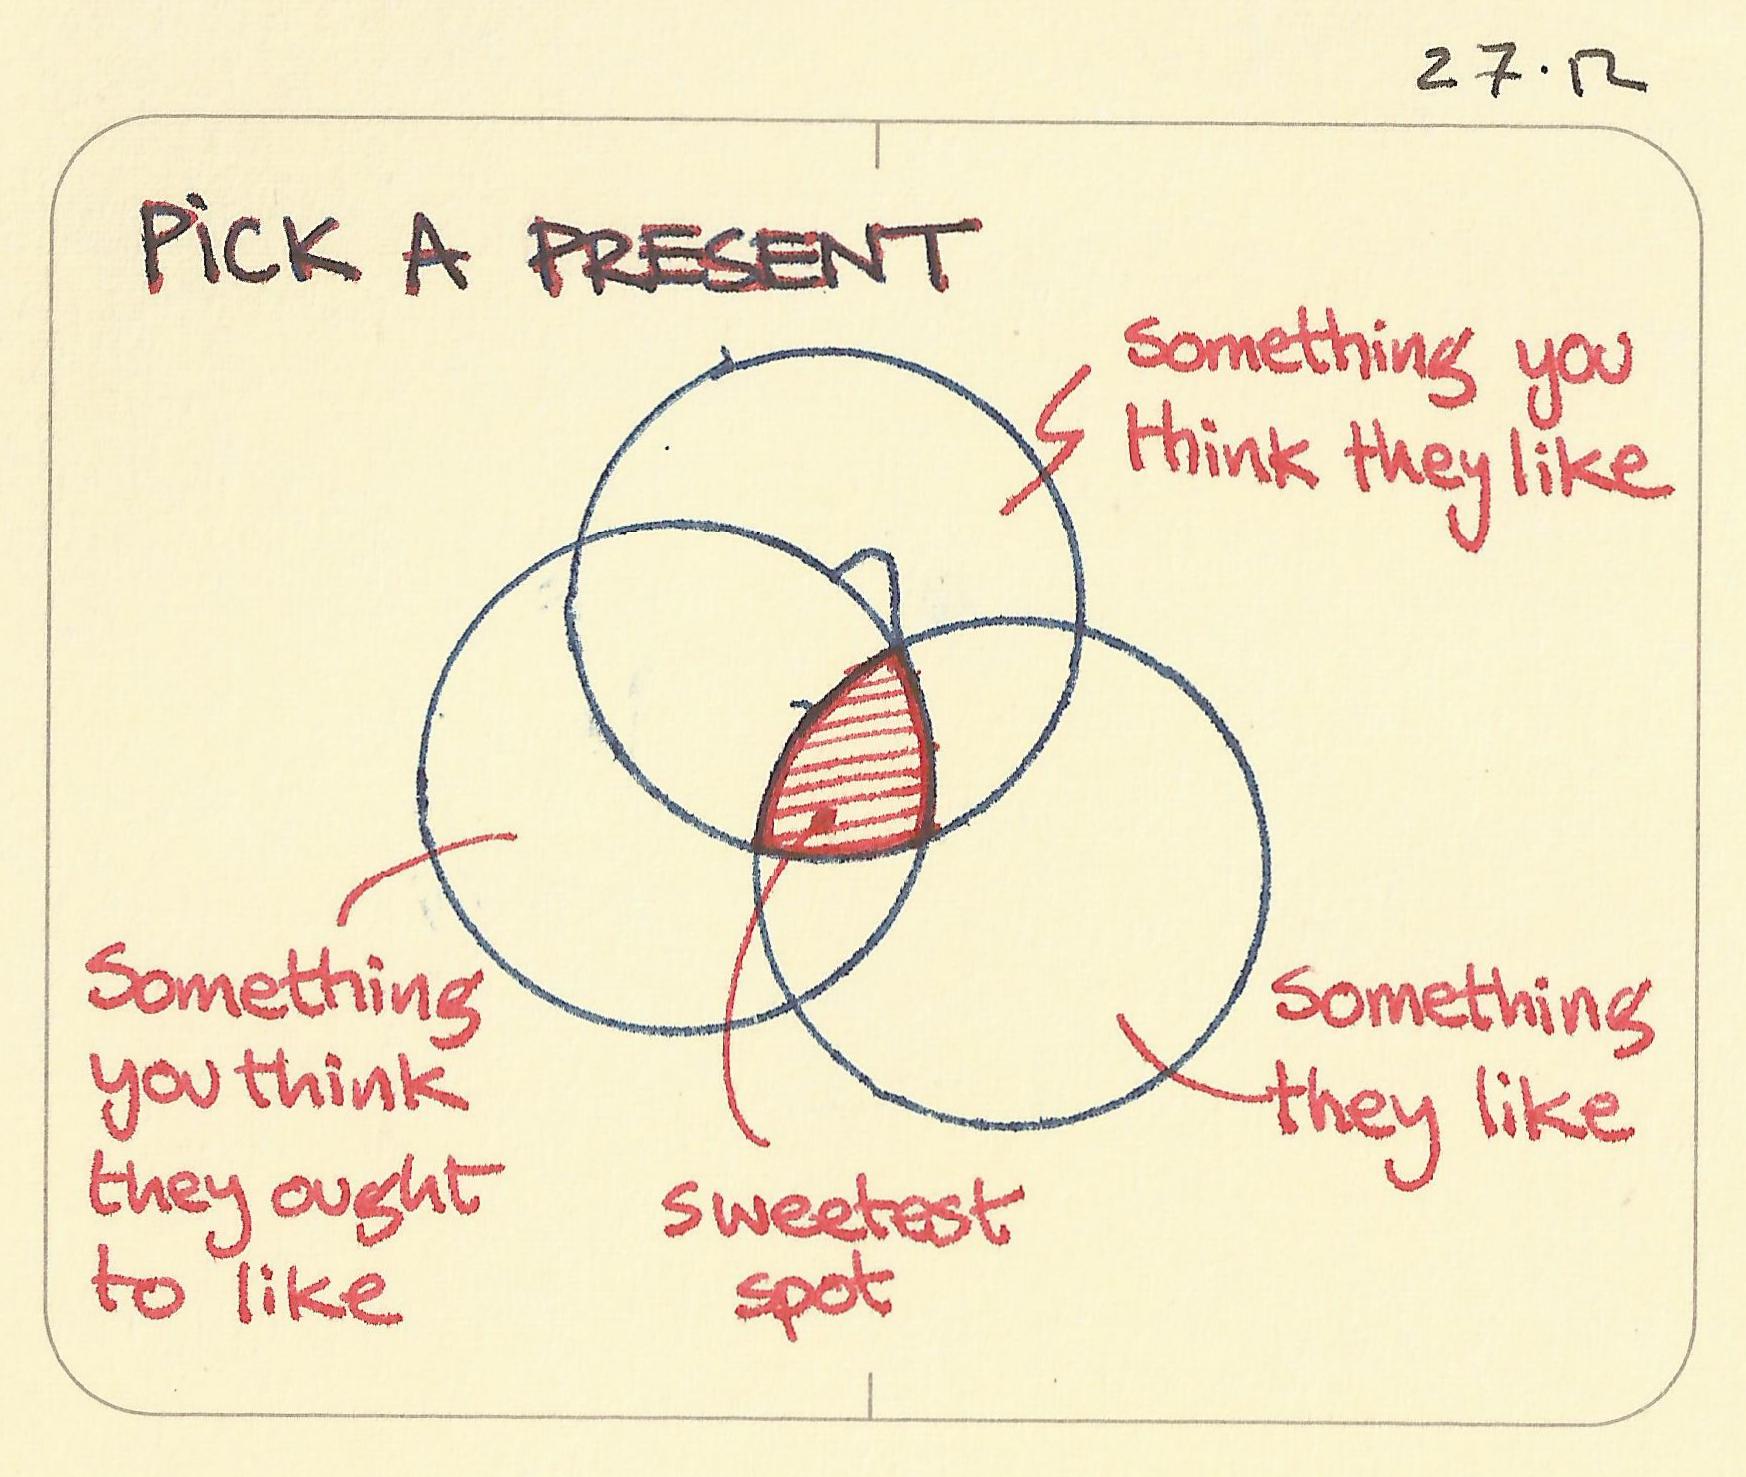 27.12
PiCK A PRESENT
something you
think they like
Something
you think
they ought
to like
something
they like
sweetest
spot